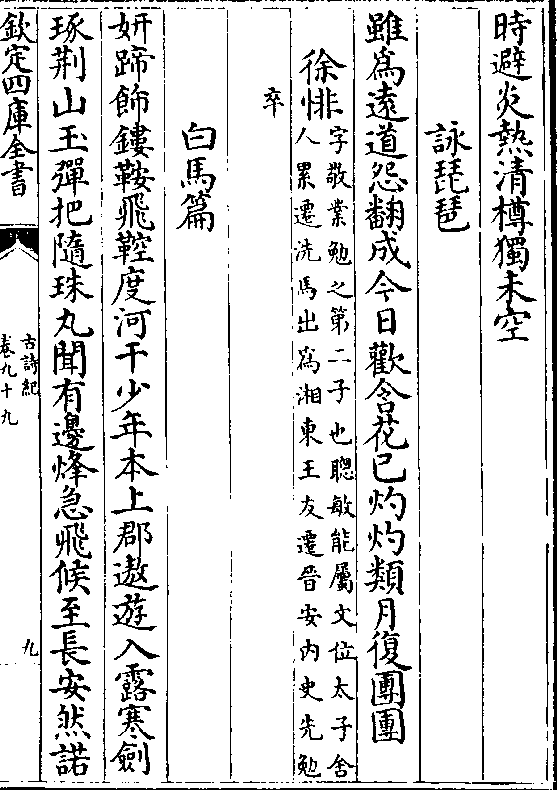 時避炎熱清樽獨未空
詠琵琶
雖爲遠道怨翻成今日歡含花已灼灼類月復團團
徐悱
字敬業勉之第二子也聰敏能屬文位太子舍
人累遷洗馬出爲湘東王友遷晉安内史先勉
卒
白馬篇
妍蹄飾鏤鞍飛鞚度河干少年本上郡遨遊入露寒劍
琢荆山玉彈把隋珠丸聞有邊烽急飛候至長安然諾
欽定四庫全書
古詩紀
卷九十九
九